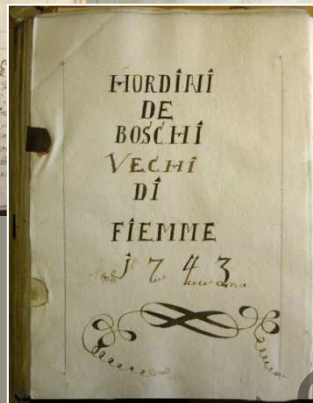 HORDINI
DE
BOSCHI
VECHI
DI
FIEMME
1743